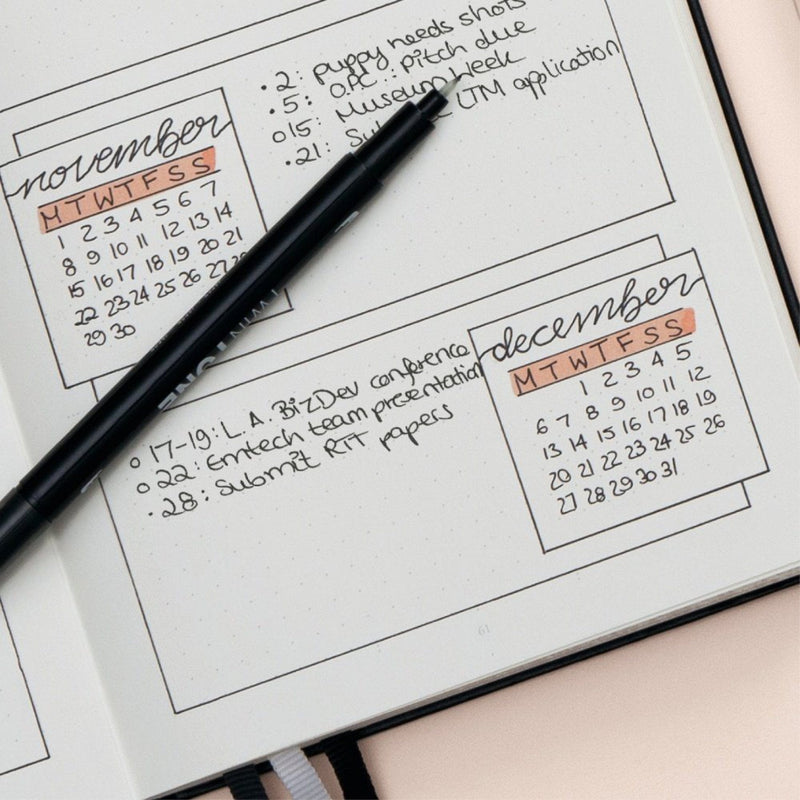 . 2: puppy needs shots
. 5: O.P.C.: pitch due
o 15: Museum Week
. 21: LTM application
november
M T W T F S S
1 2 3 4 5 6 7
8 9 10 11 12 13 14
15 16 17 18 19 20 21
22 23 24 25 26 27 28
29 30
december
M T W T F S S
1 2 3 4 5
6 7 8 9 10 11 12
13 14 15 16 17 18 19
20 21 22 23 24 25 26
27 28 29 30 31
o 17-19: L.A. BizDev conference
o 22: Emtech team presentation
. 28: Submit RIT papers
TWINTONE
61